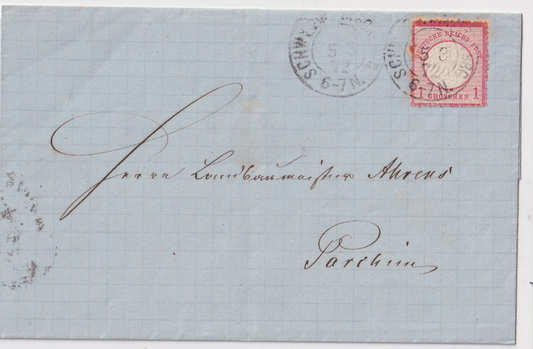 SCHWERIN
5
72
6-7N.
DEUTSCHE REICHS-POST
1 GROSCHEN 1
Herrn Landbaumeister Ahrens
Parchim